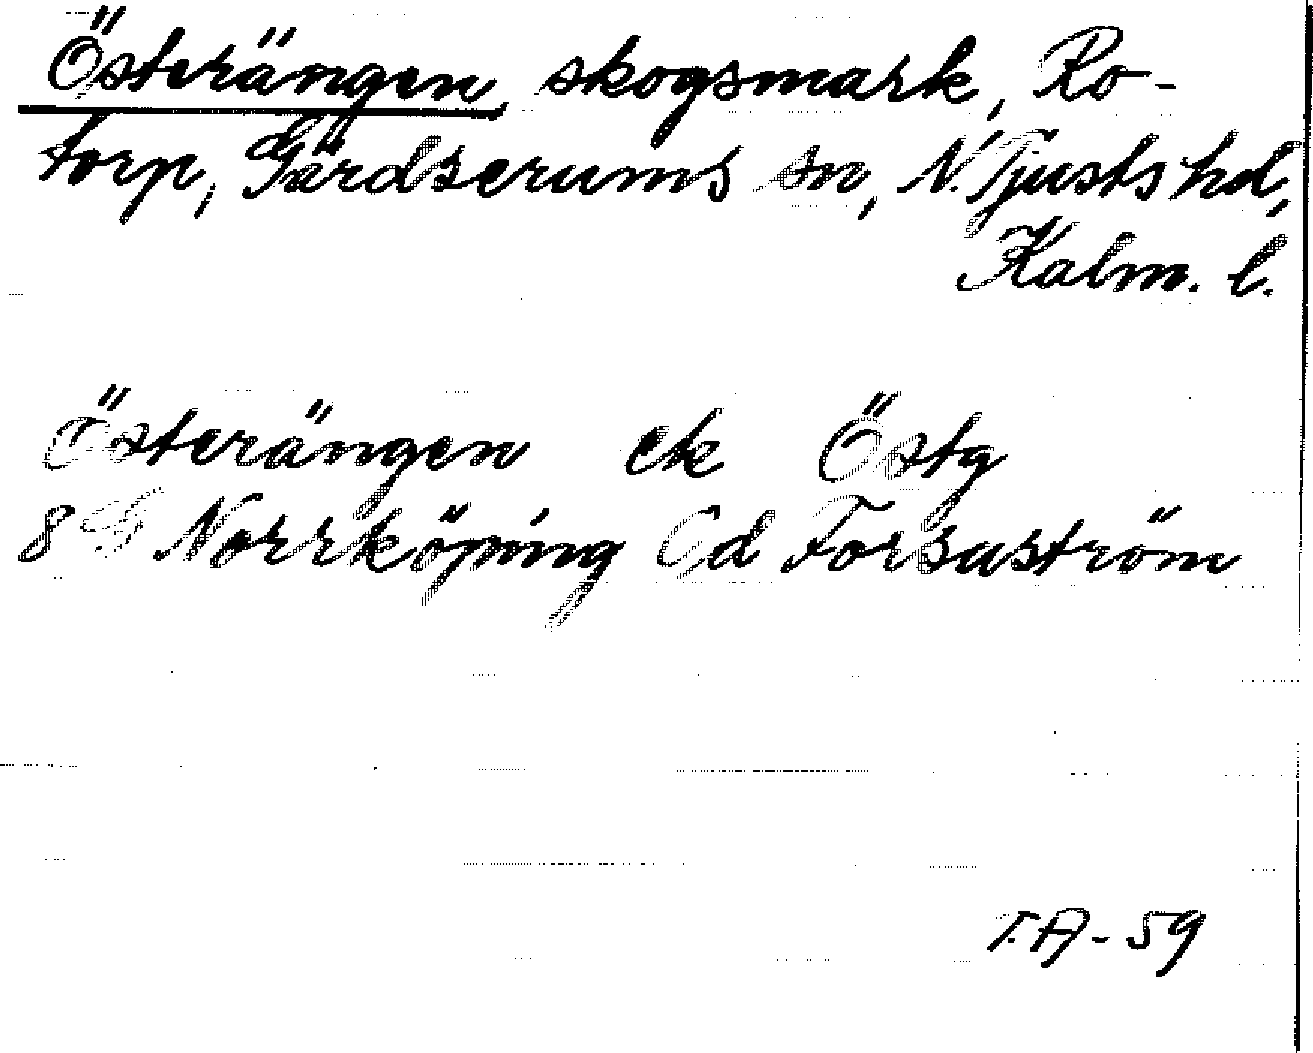 Österängen, skogsmark, Ro-
torp, Gärdserums sn, N. Tjusts hd,
Kalm. l.
Österängen ek Östg
8 G Norrköping Cd Forsaström
T.A-59